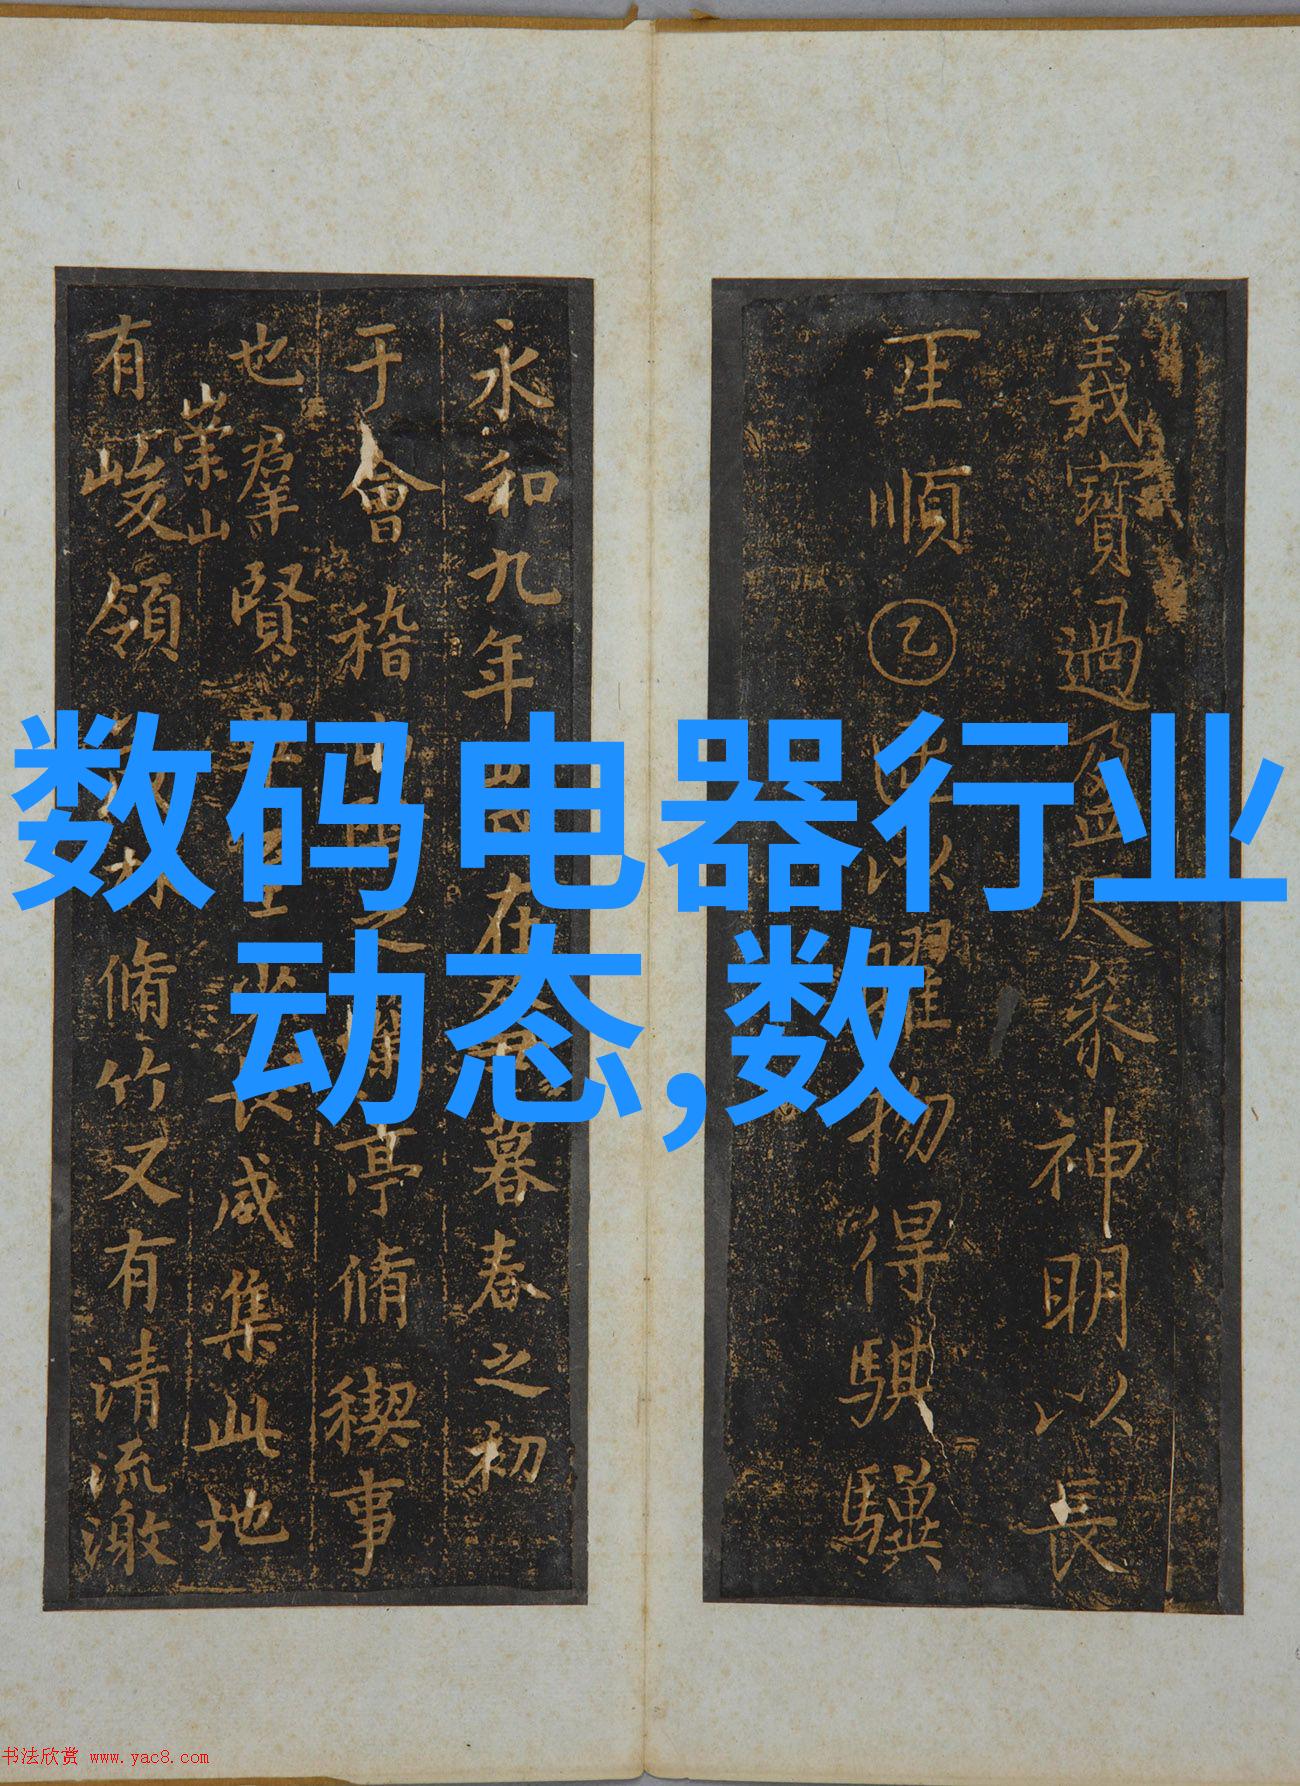 義寶過盈尺叅神明以長
順乙以耀物得騏驥
永和九年在暮春之初
于會稽山之亭脩稧事
也羣賢畢至少長咸集此地
崇山
有峻領林脩竹又有清流激
数码电器行业
动态,数
书法欣赏 www.yac8.com